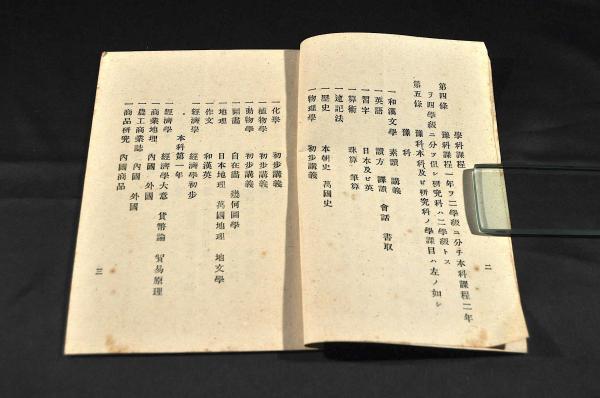 學科課程
第四條 豫科課程一年ヲ二學級ニ分チ本科課程二年
ヲ四學級ニ分ヲ但シ研究科ハ二學級トス
第五條 豫科本科及ビ研究科ノ學課目ハ左ノ如シ
豫科
一和漢文學 素讀 講義
一英語 讀方 譯讀 會話 書取
一習字 日本及ビ英
一算術 珠算 筆算
一速記法
一歷史 本朝史 萬國史
一物理學 初步講義
二
一化學 初步講義
一植物學 初步講義
一動物學 初步講義
一圖畵 自在畵 幾何圖學
一地理 日本地理 萬國地理 地文學
一作文 和漢英
一經濟學 經濟學初步
本科第一年
一經濟學 經濟學大意 貨幣論 貿易原理
一商業地理 內國 外國
一農工商業誌 內國 外國
一商品研究 內國商品
三